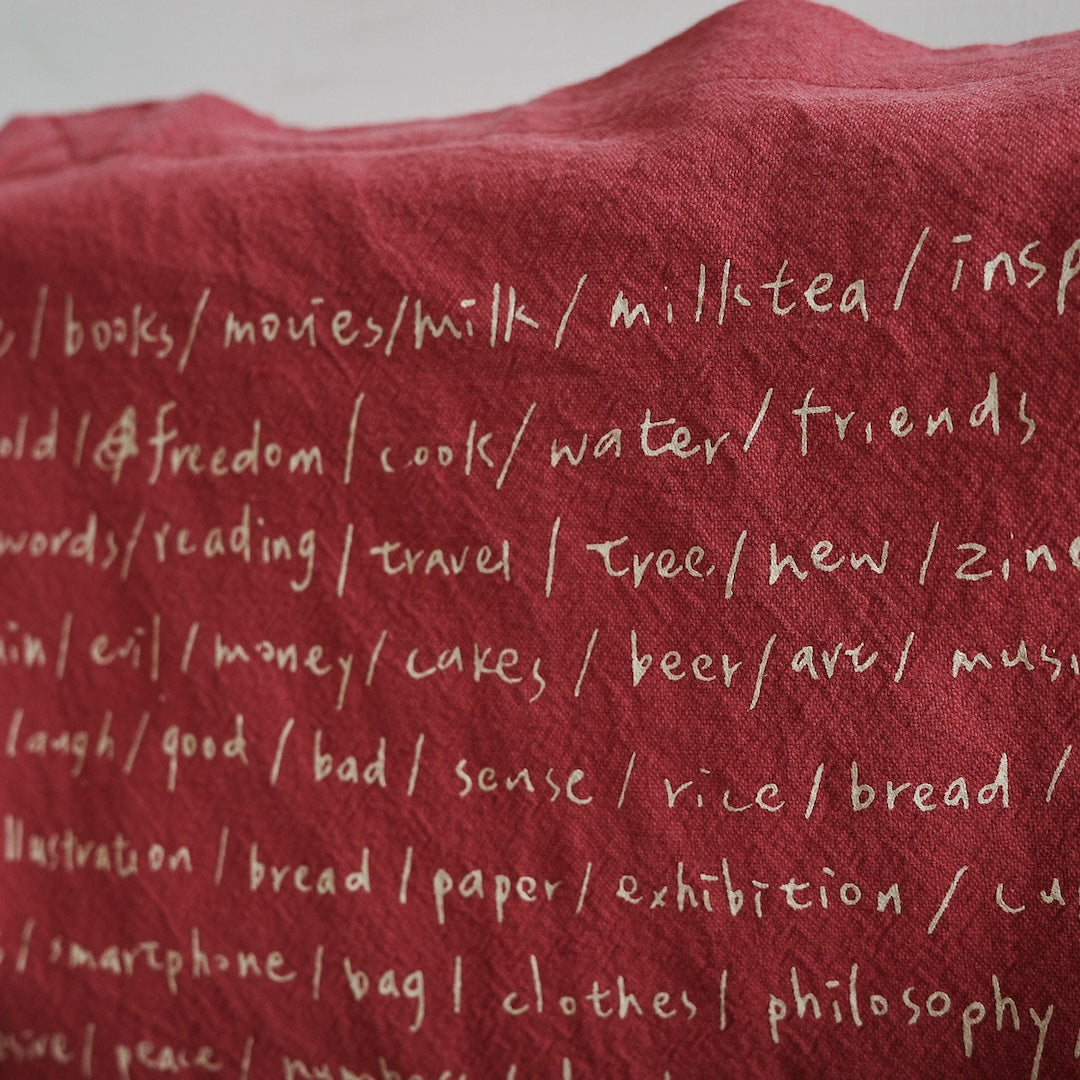 / books/ movies/milk/ milktea / insp
old / freedom / cook/ water/ friends
words/reading / travel / tree/ new / zine
/ evil / money/ cakes / beer/ art/ musi
/laugh/ good / bad / sense / rice / bread /
llustration / bread / paper/ exhibition / cu
/ smartphone / bag / clothes / philosophy/
/ peace /